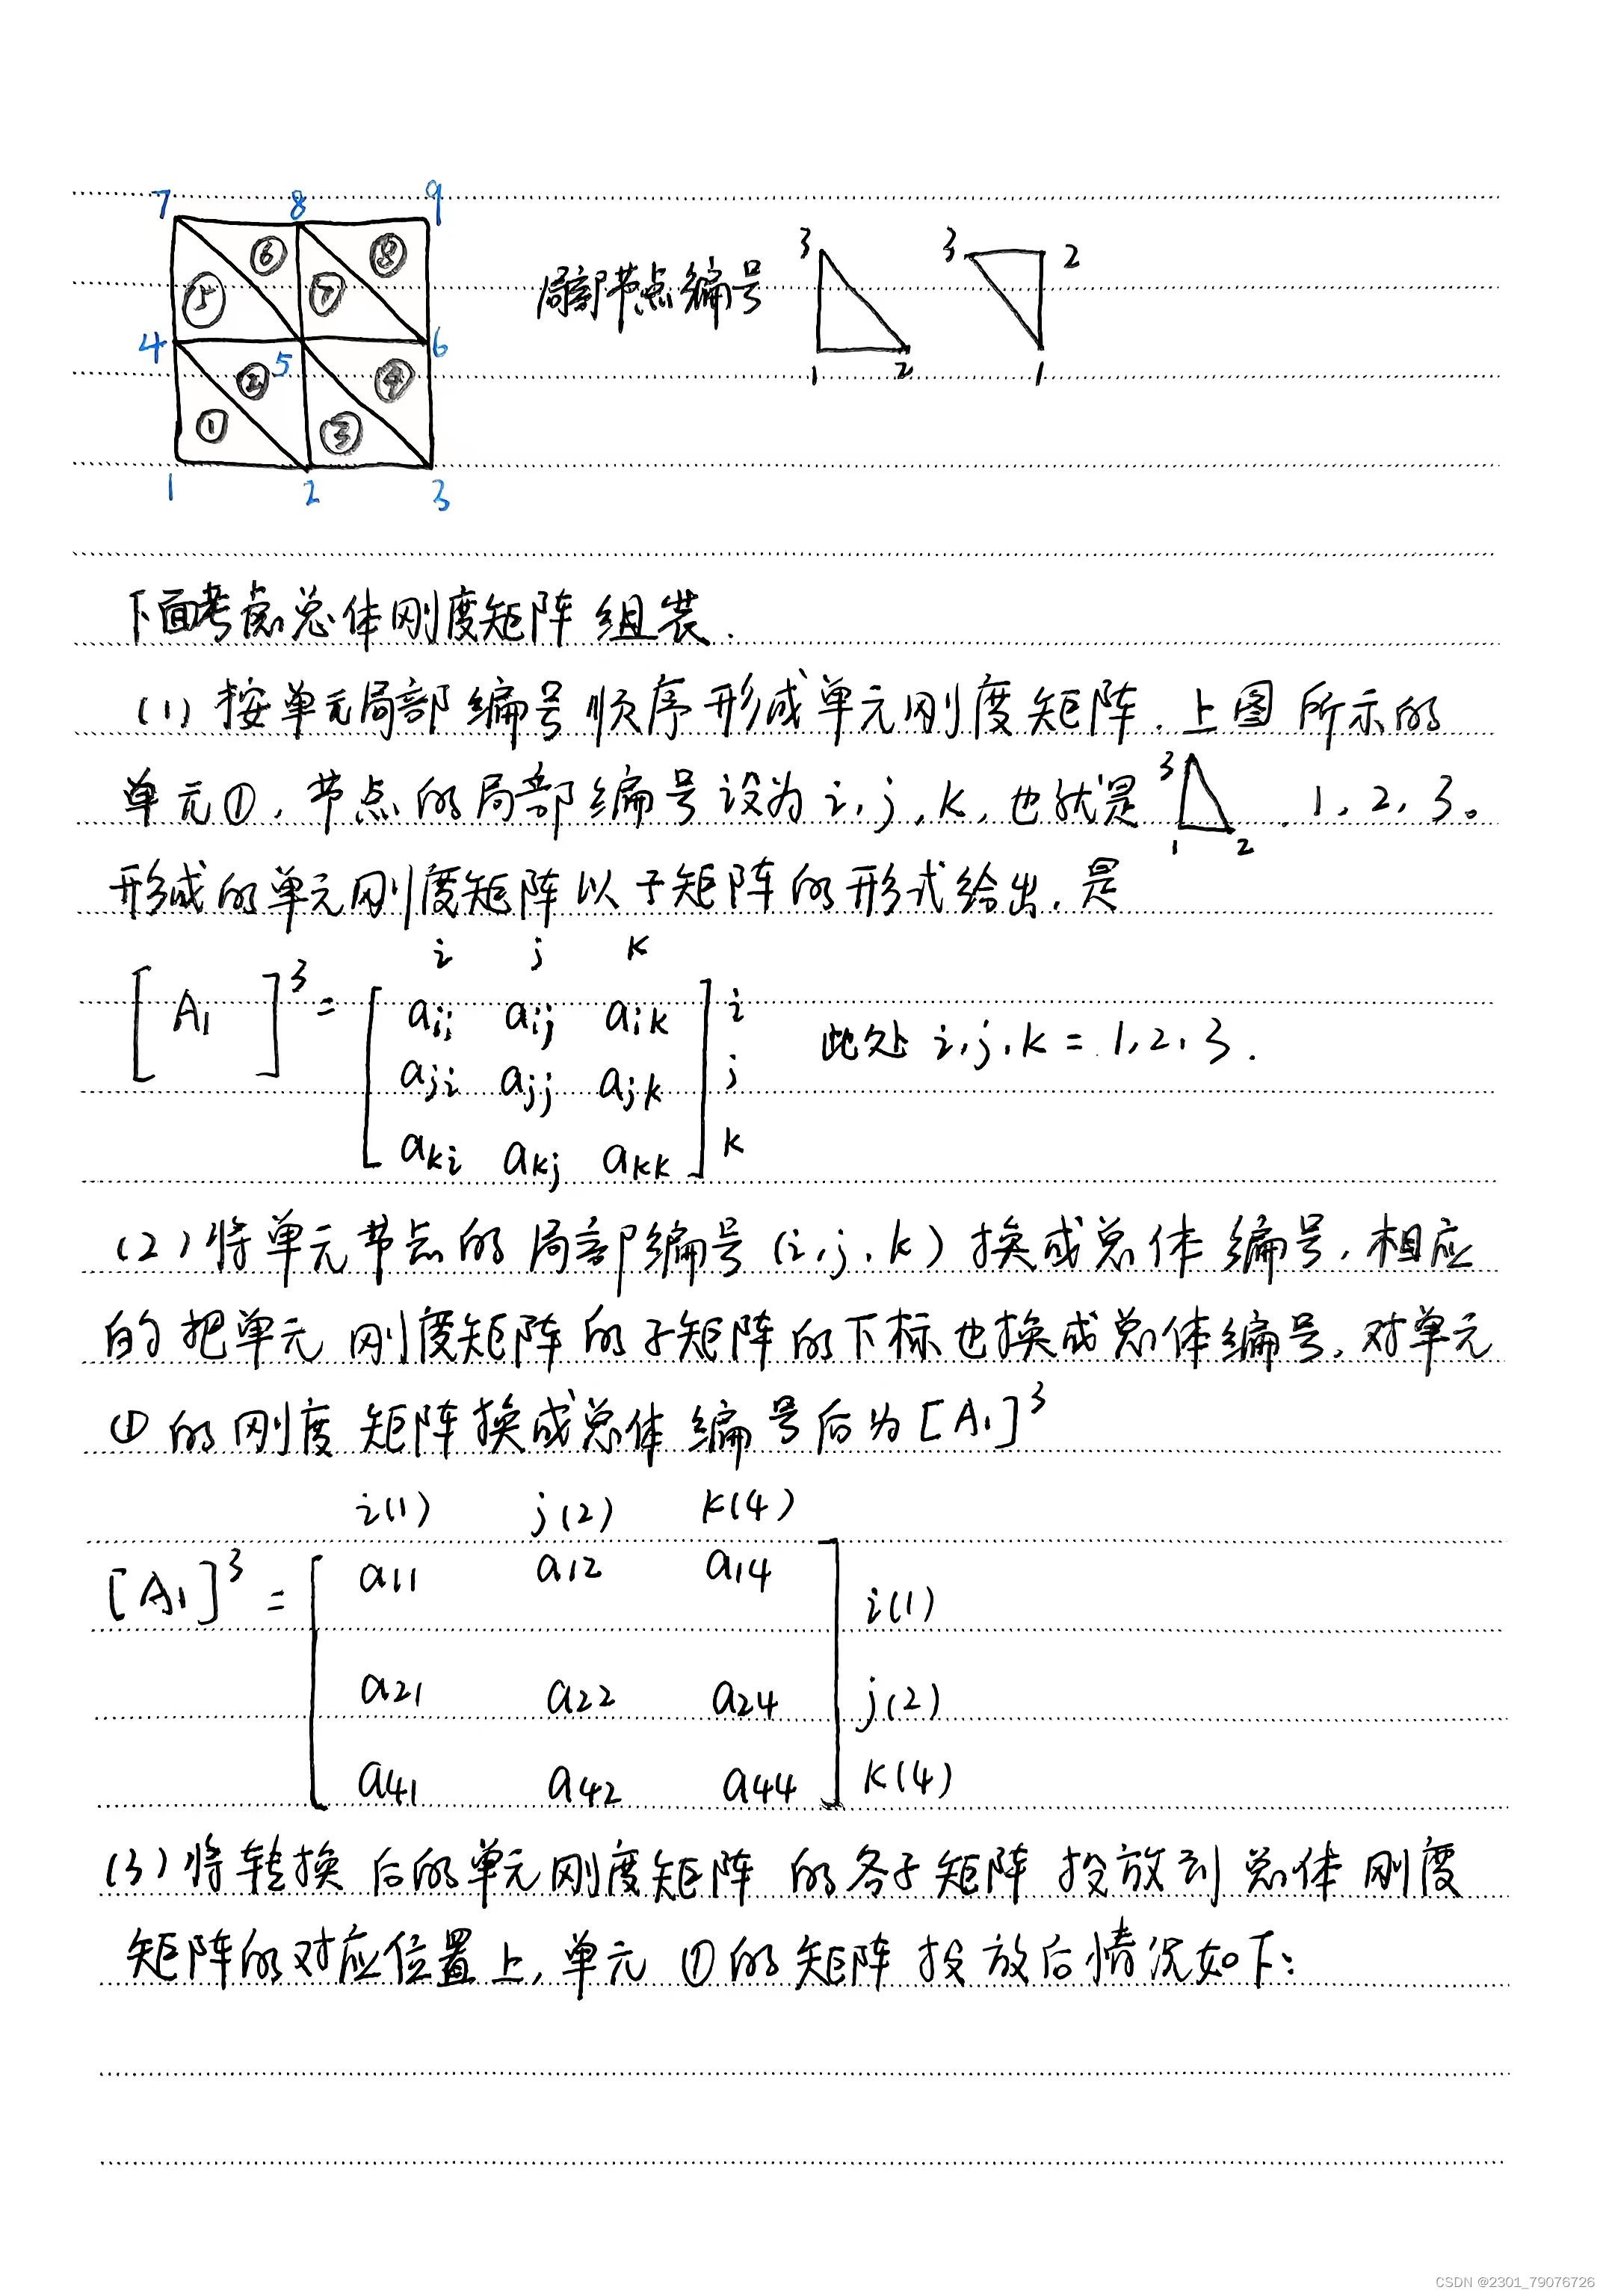 7 8 9
⑥ ⑧
⑤ ⑦
4 5 6
② ④
① ③
1 2 3
局部节点编号
3 1 2
3 2 1
下面考虑总体刚度矩阵组装.
(1) 按单元局部编号顺序形成单元刚度矩阵.上图所示的
单元①,节点的局部编号设为i,j,k,也就是 3 1 2 .1,2,3。
形成的单元刚度矩阵以子矩阵的形式给出,是
i j k
[A1]³ = [ aii aij aik ] i 此处 i,j,k = 1,2,3.
aji ajj ajk j
aki akj akk k
(2)将单元节点的局部编号(i,j,k)换成总体编号,相应
的把单元刚度矩阵的子矩阵的下标也换成总体编号,对单元
①的刚度矩阵换成总体编号后为[A1]³
i(1) j(2) k(4)
[A1]³ = [ a11 a12 a14 ] i(1)
a21 a22 a24 j(2)
a41 a42 a44 k(4)
(3)将转换后的单元刚度矩阵的各子矩阵投放到总体刚度
矩阵的对应位置上,单元①的矩阵投放后情况如下:
CSDN @2301_79076726